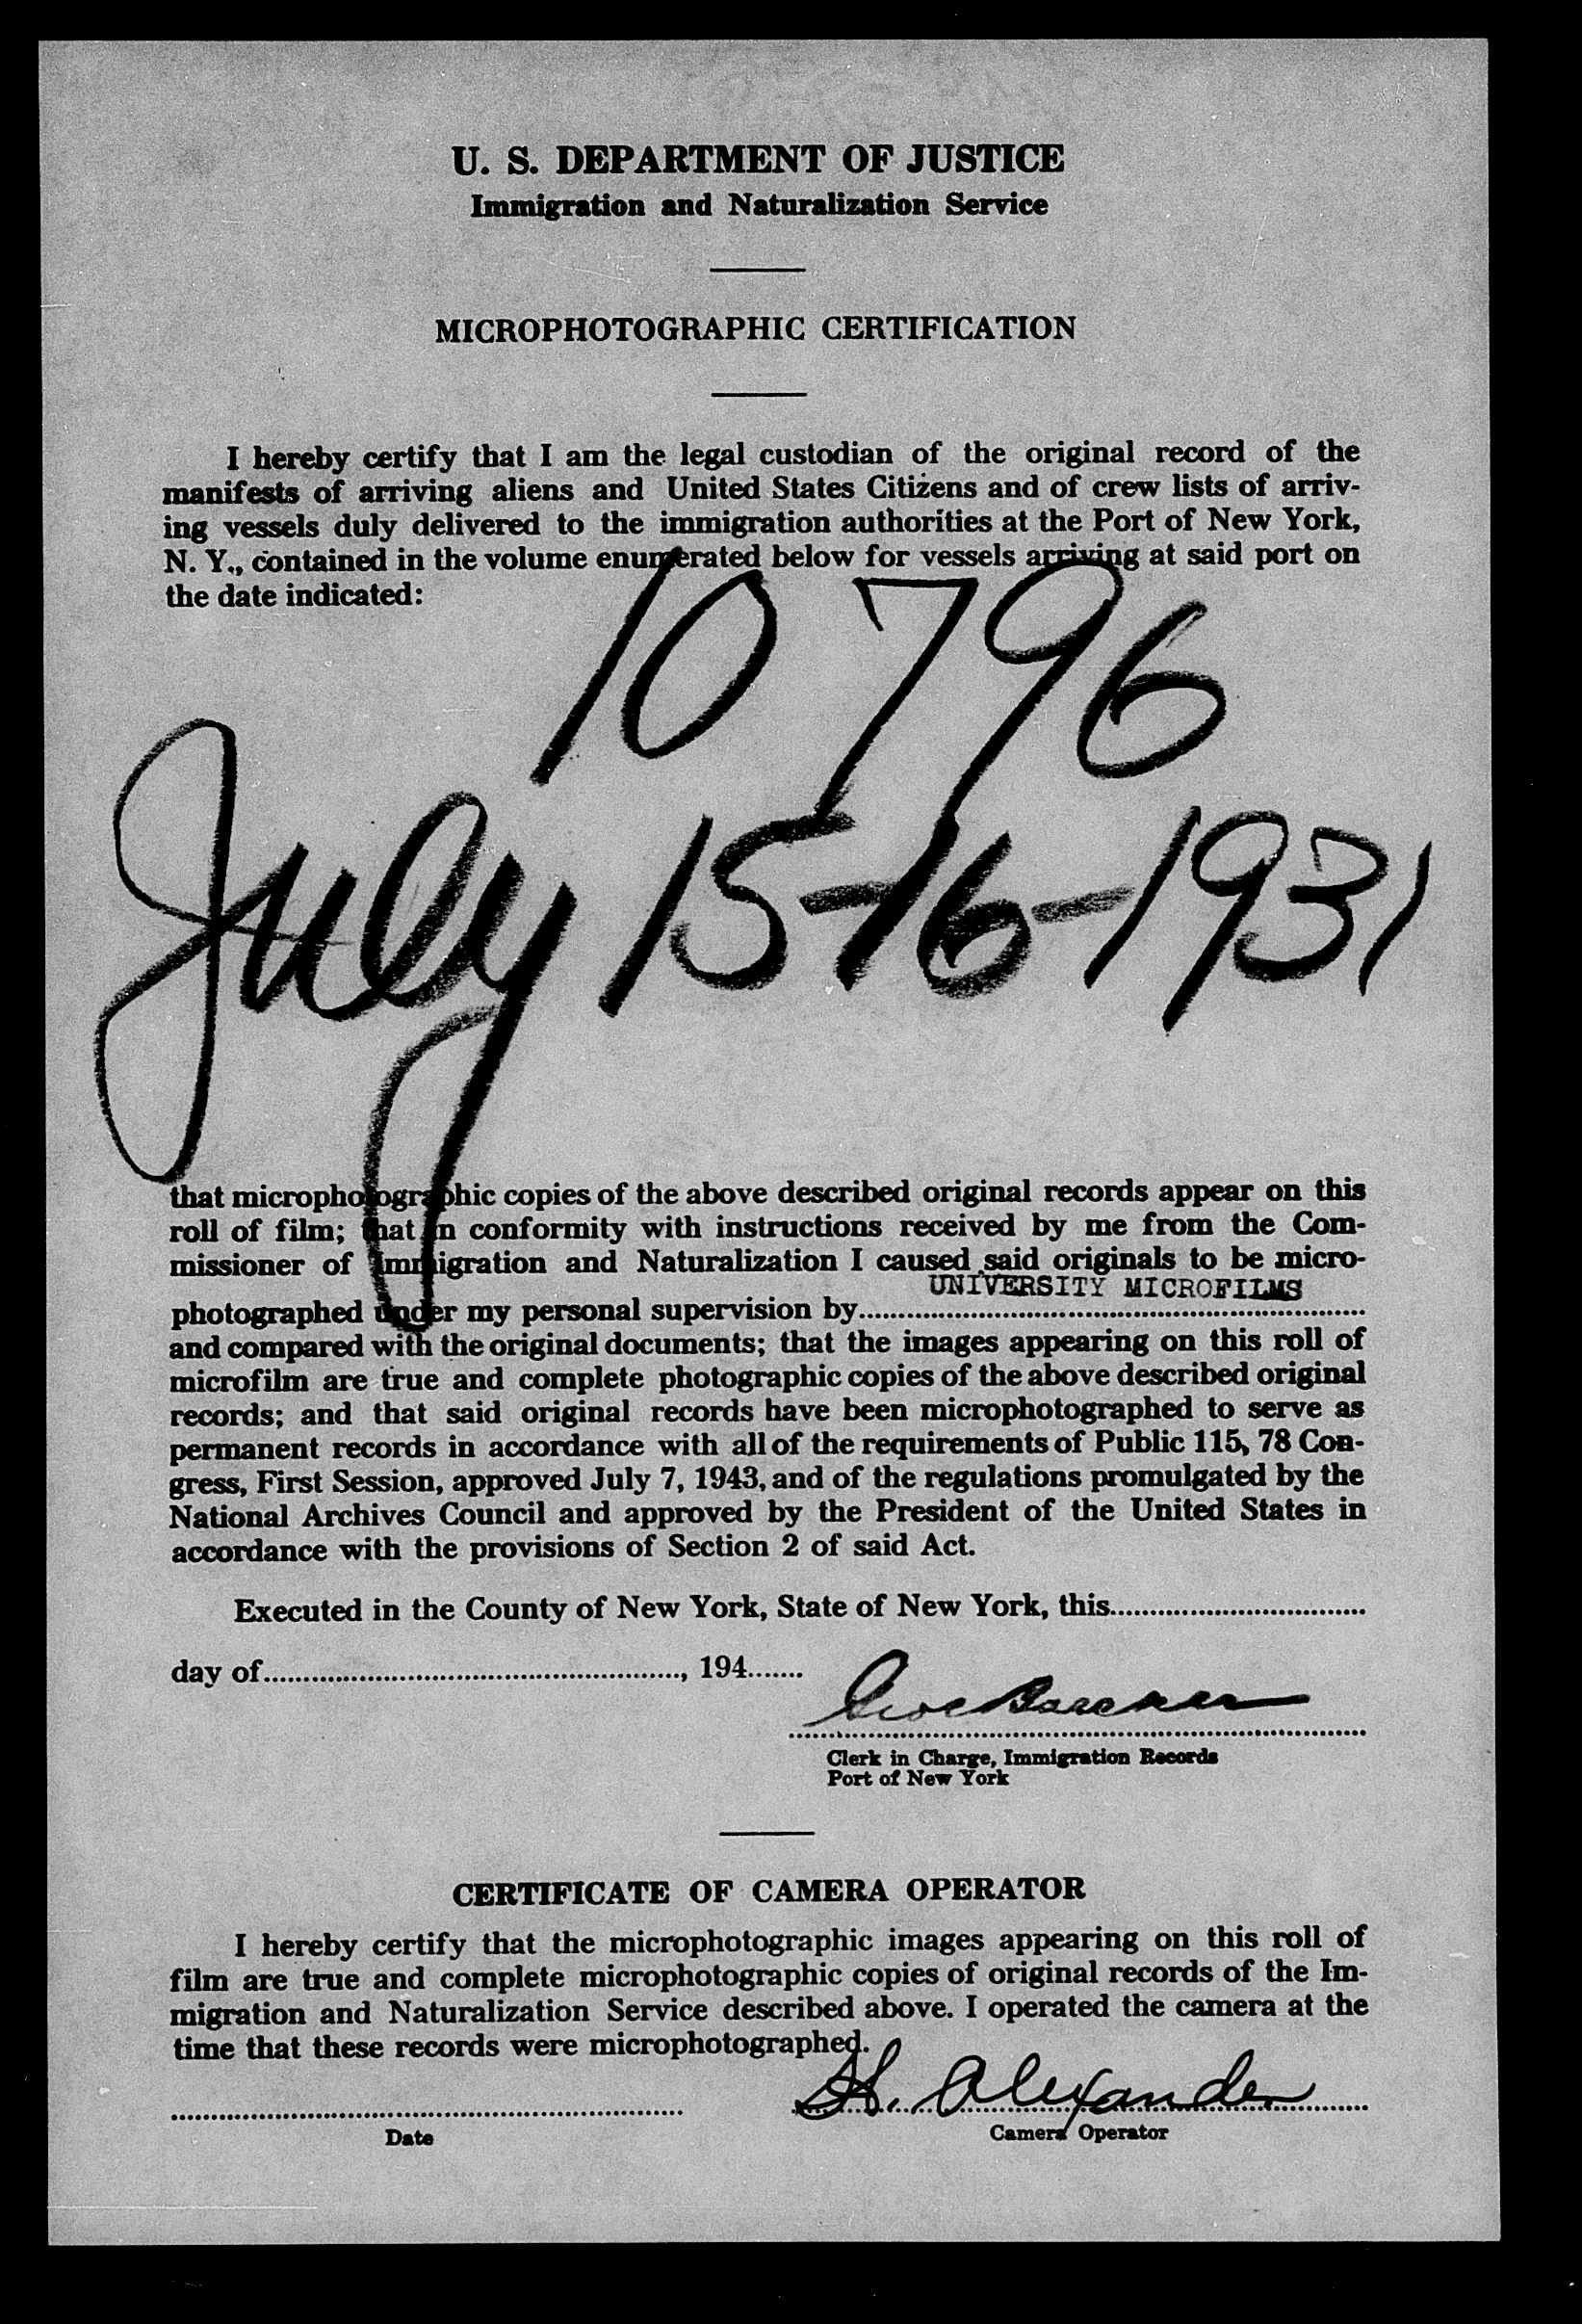 U. S. DEPARTMENT OF JUSTICE
Immigration and Naturalization Service
MICROPHOTOGRAPHIC CERTIFICATION
I hereby certify that I am the legal custodian of the original record of the
manifests of arriving aliens and United States Citizens and of crew lists of arriv-
ing vessels duly delivered to the immigration authorities at the Port of New York,
N. Y., contained in the volume enumerated below for vessels arriving at said port on
the date indicated:
10796
July 15-16-1931
that microphotographic copies of the above described original records appear on this
roll of film; that in conformity with instructions received by me from the Com-
missioner of Immigration and Naturalization I caused said originals to be micro-
UNIVERSITY MICROFILMS
photographed under my personal supervision by
and compared with the original documents; that the images appearing on this roll of
microfilm are true and complete photographic copies of the above described original
records; and that said original records have been microphotographed to serve as
permanent records in accordance with all of the requirements of Public 115, 78 Con-
gress, First Session, approved July 7, 1943, and of the regulations promulgated by the
National Archives Council and approved by the President of the United States in
accordance with the provisions of Section 2 of said Act.
Executed in the County of New York, State of New York, this
day of, 194
Clerk in Charge, Immigration Records
Port of New York
CERTIFICATE OF CAMERA OPERATOR
I hereby certify that the microphotographic images appearing on this roll of
film are true and complete microphotographic copies of original records of the Im-
migration and Naturalization Service described above. I operated the camera at the
time that these records were microphotographed.
H. Alexander
Date
Camera Operator